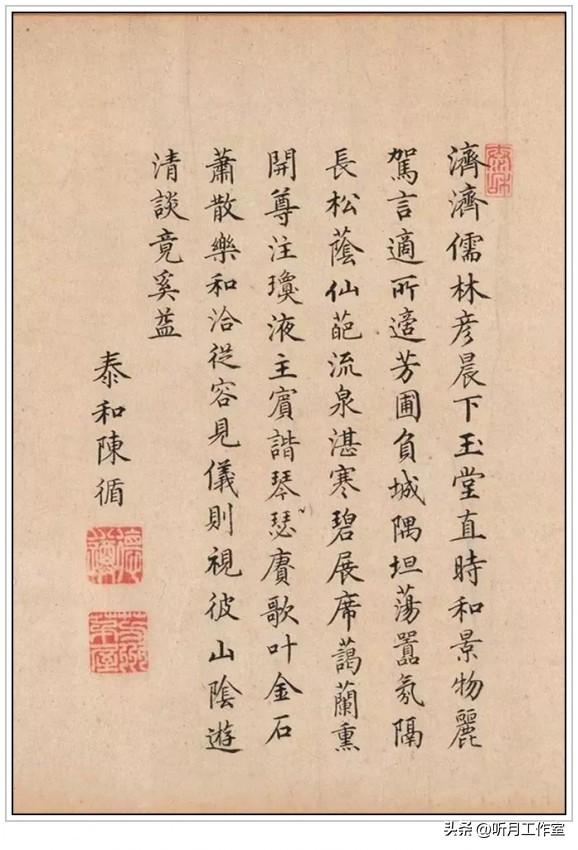 濟濟儒林彥晨下玉堂直時和景物麗
駕言適所適芳圃負城隅坦蕩囂氛隔
長松蔭仙葩流泉湛寒碧展席藹蘭熏
開尊注瓊液主賓諧琴瑟賡歌叶金石
蕭散樂和洽從容見儀則視彼山陰遊
清談竟奚益
泰和陳循
头条 @听月工作室